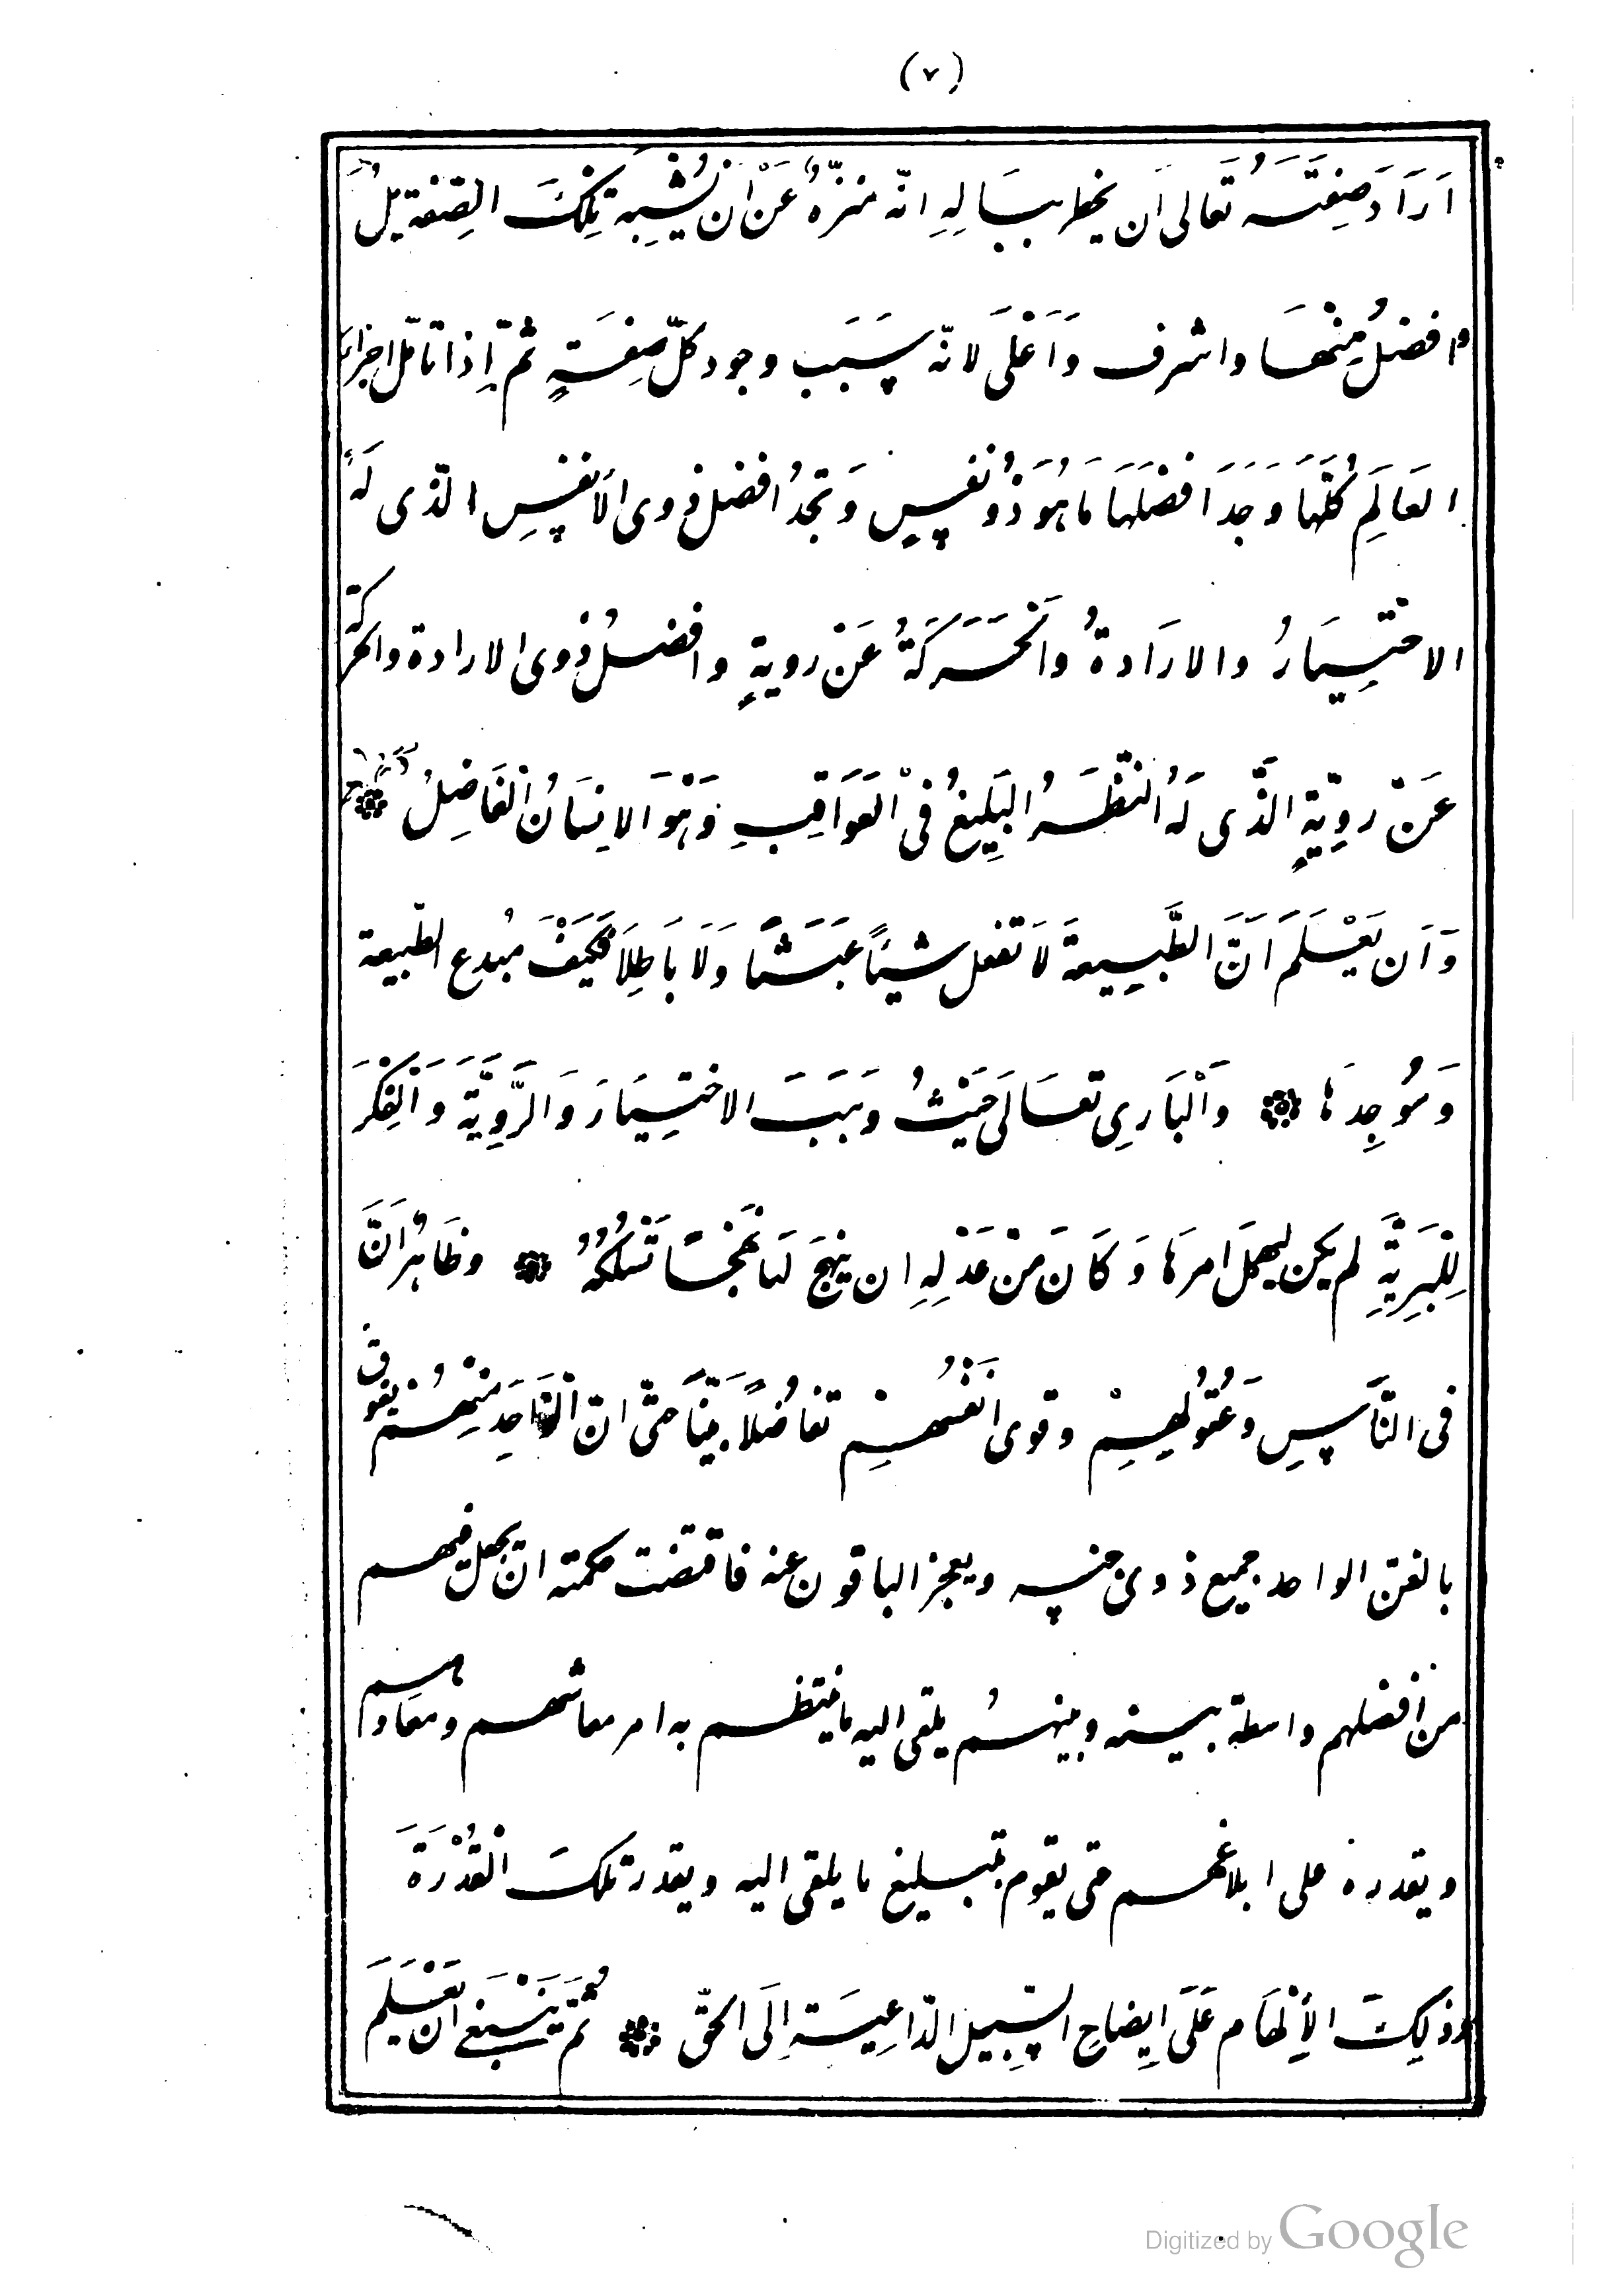 (٧)
اَرَادَ صِفَتَهُ تَعَالى اَن يخطر بِبَالِهِ انّه منزّهٌ عَنْ اَن يُشْبِه تِلكَ الصِفة بل
وافضلُ مِنْهَا واشرف وَاَعْلَى لانّه سَبَب وجود كلّ صِفَةٍ ثمّ اِذا تامّل اجزاء
العَالَمِ كُلّهَا وَجَدَ افضَلهَا مَا هُوَ ذُو نفسٍ وَ تجدُ افضل ذوى الاَنفسِ الذّى لَهُ
الاختِيَارُ والارَادةُ وَالحَرَكَةُ عَنْ رويةٍ وافضلُ ذوى الارادة والحركة
عَنْ رويّةٍ الذّى لَهُ النّظَرُ البَلِيغُ فى الْعَوَاقِبِ وَهْوَ الاِنسَانُ الْفَاضِلُ
وَاَن يَعْلَمَ اَنَّ الطَّبِيعَة لَا تفعل شيئاً عَبَثًا وَلَا بَاطِلاً فكَيْفَ مبُدع الطّبيعة
وَمُوجِدهَا وَالْبَارِى تعَالىَ حَيْثُ وهَبَ الاختِيَارَ وَالرَّوِيَّة وَالْفِكْرَ
لِلْبَرِيَّةِ لم يكن ليهملَ امرهَا وَ كَانَ مِنْ عَدْلِهِ ان ينهجَ لهَا نَهْجًا تَسْلكُهُ وظَاهرٌ اَنَّ
فى النَّاسِ وَعُقُولِهِمْ وقوى انْفُسهِمْ تفاضُلاً بيّناً حتّى انّ الْوَاحِدَ مِنْهُمْ يفوق
بالفنّ الواحد جميع ذوى جنسه ويعجز الباقون عنه فاقتضت حكمته ان يجعل فيهم
من افضلهم واسطة بينه وبينهُم يلقى اليه ما ينتظم به امر معاشهم ومعادهم
ويقدره على ابلاغهم حتى يقوم بتبليغ ما يلقى اليه ويقدر تلكَ القُدْرَةَ
وذلِكَ الاِلْهَام عَلَى اِيضَاحِ السّبِيلِ الدّاعِيَةِ اِلَى الحَقّ ثُمَّ يَنْبَغِى اَن يَعْلَم
Digitized by Google